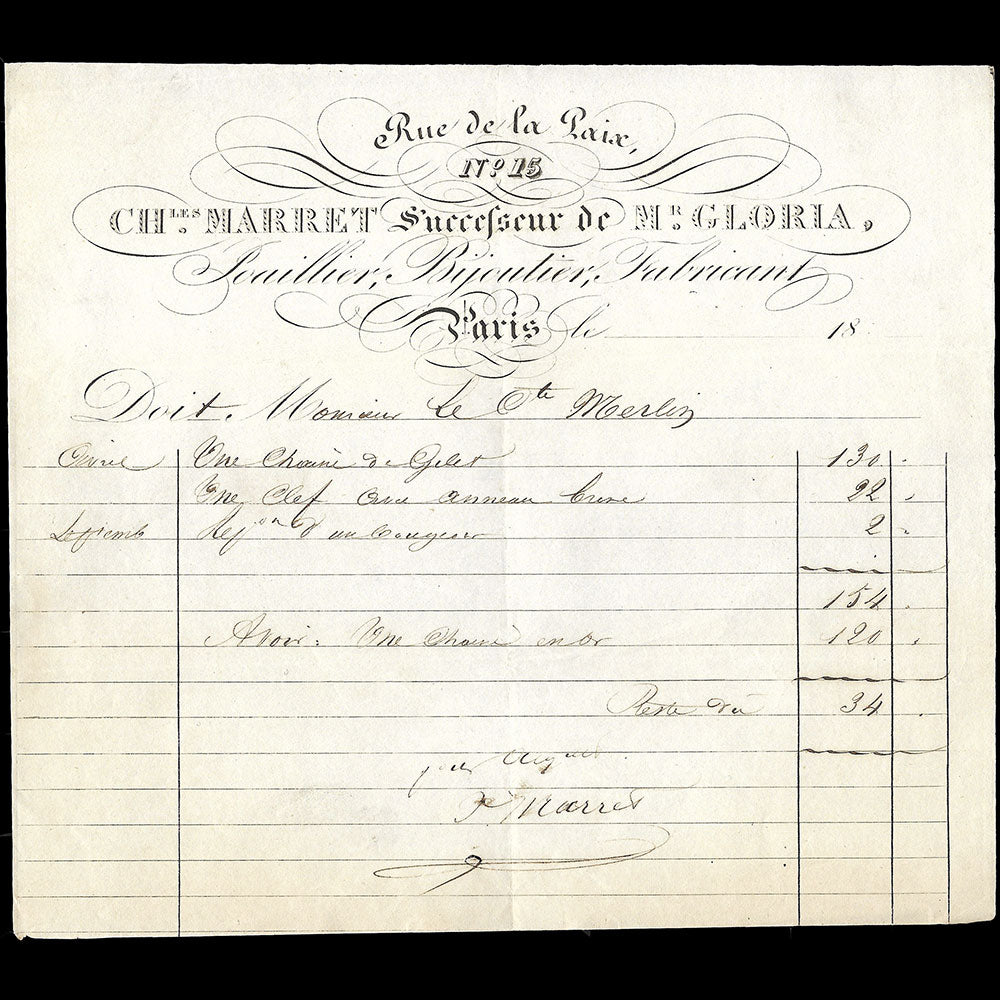 Rue de la Paix,
Nº 15
CH.LES MARRET Successeur de MR. GLORIA,
Joaillier, Bijoutier, Fabricant
Paris le 18
Doit, Monsieur Le Cte Merlin
Une Chaine de Gilet 130
Une Clef avec anneau 22
Septemb Repon d'un 2
154
Avoir : Une Chaine en Or 120
Reste dû 34
pour acquit
Marret